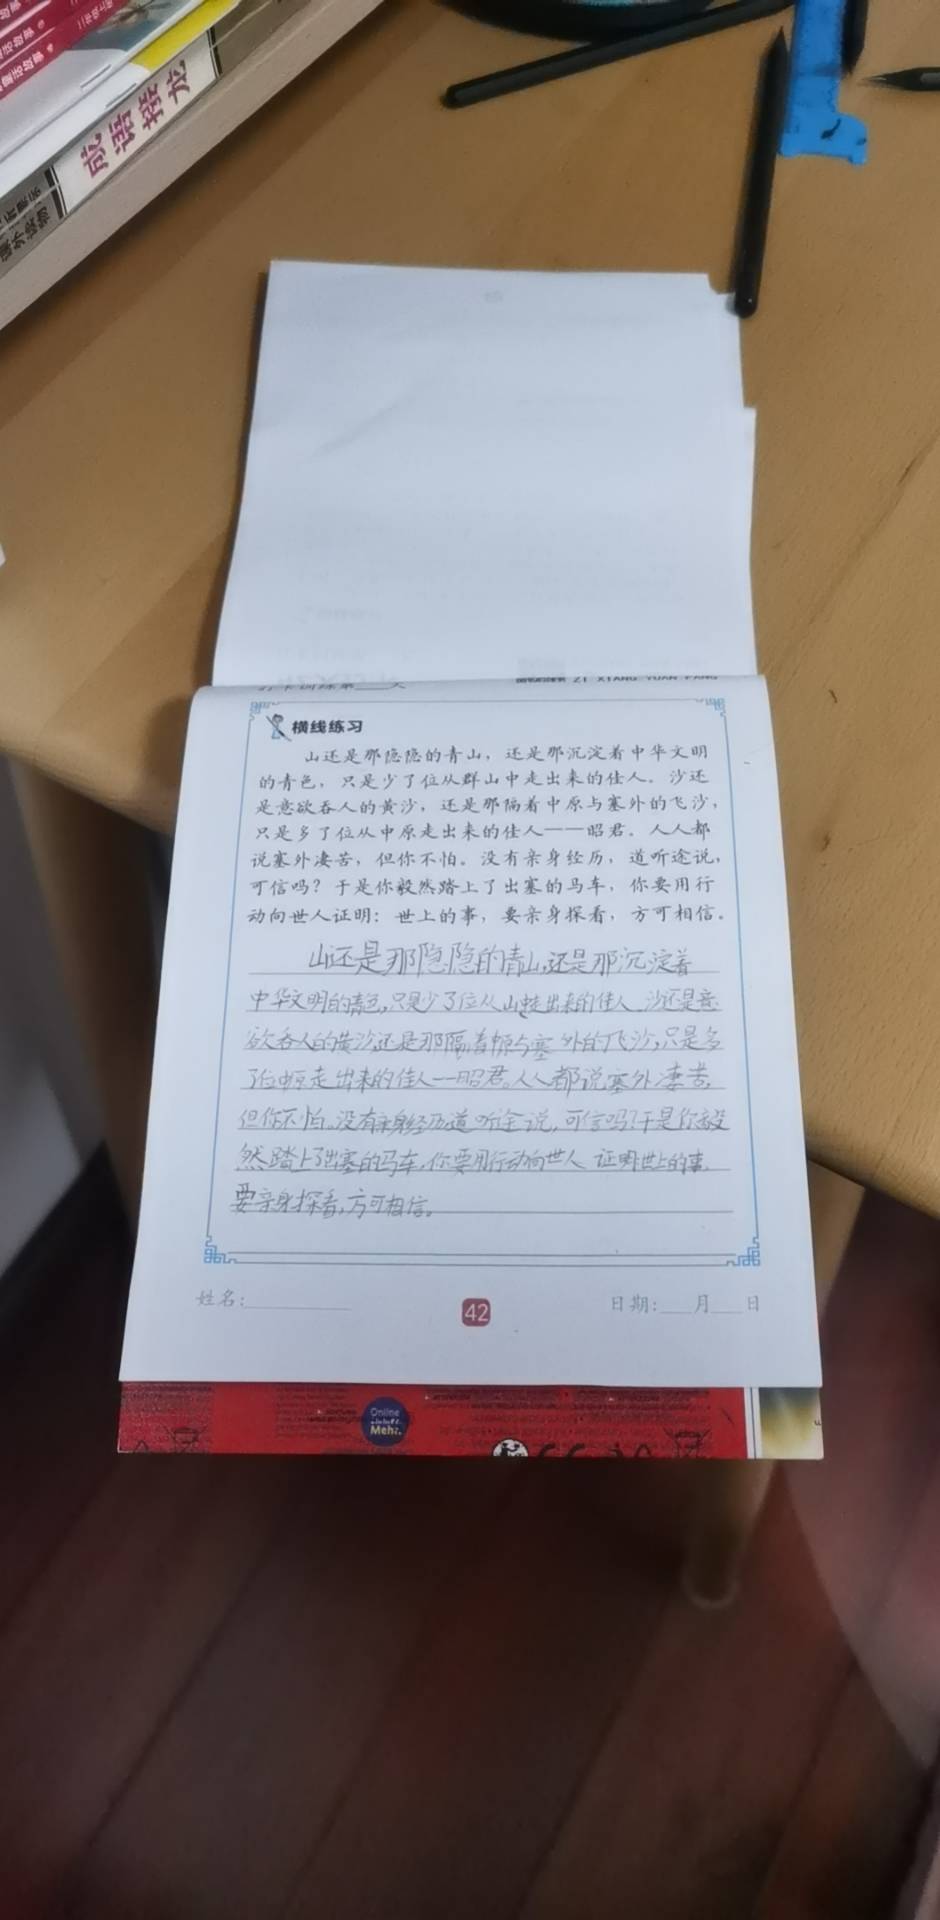 成语接龙
课外读物
打卡训练第___天
ZI XIANG YUAN FANG
横线练习
山还是那隐隐的青山，还是那沉淀着中华文明
的青色，只是少了位从群山中走出来的佳人。沙还
是意欲吞人的黄沙，还是那隔着中原与塞外的飞沙，
只是多了位从中原走出来的佳人——昭君。人人都
说塞外凄苦，但你不怕。没有亲身经历，道听途说，
可信吗？于是你毅然踏上了出塞的马车，你要用行
动向世人证明：世上的事，要亲身探看，方可相信。
山还是那隐隐的青山,还是那沉淀着
中华文明的青色,只是少了位从山中走出来的佳人.沙还是意
欲吞人的黄沙,还是那隔着中原与塞外的飞沙,只是多
了位中原走出来的佳人——昭君。人人都说塞外凄苦,
但你不怕。没有亲身经历道听途说,可信吗?于是你毅
然踏上了出塞的马车,你要用行动向世人证明世上的事,
要亲身探看,方可相信。
姓名:
42
日期: 月 日
Online
Mehr.